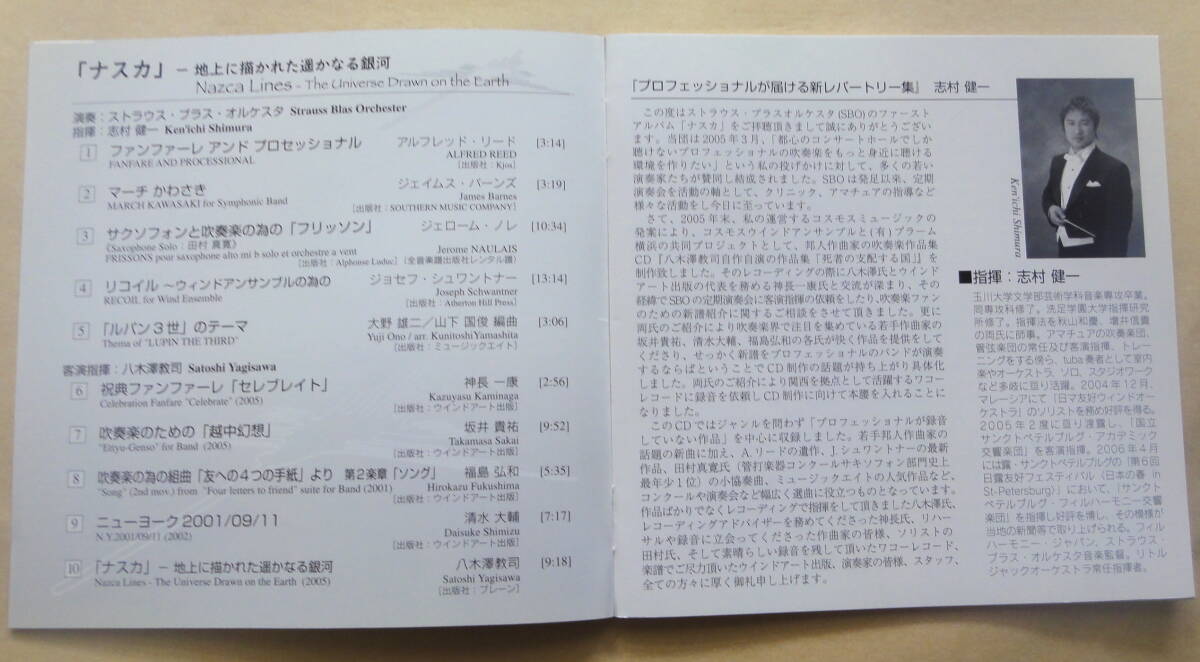 「ナスカ」－ 地上に描かれた遥かなる銀河
Nazca Lines - The Universe Drawn on the Earth
演奏：ストラウス・ブラス・オルケスタ Strauss Blas Orchester
指揮：志村 健一 Ken'ichi Shimura
1 ファンファーレ アンド プロセッショナル アルフレッド・リード [3:14]
FANFARE AND PROCESSIONAL ALFRED REED
［出版社：Kjos］
2 マーチ かわさき ジェイムス・バーンズ [3:19]
MARCH KAWASAKI for Symphonic Band James Barnes
［出版社：SOUTHERN MUSIC COMPANY］
3 サクソフォンと吹奏楽の為の「フリッソン」 ジェローム・ノレ [10:34]
（Saxophone Solo：田村 真寛）
FRISSONS pour saxophone alto mi b solo et orchestre a vent Jerome NAULAIS
［出版社：Alphonse Luduc］（全音楽譜出版社レンタル譜）
4 リコイル ～ウィンドアンサンブルの為の ジョセフ・シュワントナー [13:14]
RECOIL for Wind Ensemble Joseph Schwantner
［出版社：Atherton Hill Press］
5 「ルパン３世」のテーマ 大野 雄二／山下 国俊 編曲 [3:06]
Thema of "LUPIN THE THIRD" Yuji Ono / arr. KunitoshiYamashita
［出版社：ミュージックエイト］
客演指揮：八木澤教司 Satoshi Yagisawa
6 祝典ファンファーレ「セレブレイト」 神長 一康 [2:56]
Celebration Fanfare "Celebrate" (2005) Kazuyasu Kaminaga
［出版社：ウインドアート出版］
7 吹奏楽のための「越中幻想」 坂井 貴祐 [9:52]
"Ettyu-Genso" for Band (2005) Takamasa Sakai
［出版社：ウインドアート出版］
8 吹奏楽の為の組曲「友への４つの手紙」より 第２楽章「ソング」 福島 弘和 [5:35]
"Song" (2nd mov.) from "Four letters to friend" suite for Band (2001) Hirokazu Fukushima
［出版社：ウインドアート出版］
9 ニューヨーク 2001/09/11 清水 大輔 [7:17]
N.Y.2001/09/11 (2002) Daisuke Shimizu
［出版社：ウインドアート出版］
10 「ナスカ」－ 地上に描かれた遥かなる銀河 八木澤教司 [9:18]
Nazca Lines - The Universe Drawn on the Earth (2005) Satoshi Yagisawa
［出版社：ブレーン］
「プロフェッショナルが届ける新レパートリー集」 志村 健一
この度はストラウス・ブラスオルケスタ(SBO)のファースト
アルバム「ナスカ」をご拝聴頂きまして誠にありがとうござい
ます。当団は2005年３月、「都心のコンサートホールでしか
聴けないプロフェッショナルの吹奏楽をもっと身近に聴ける
環境を作りたい」という私の投げかけに対して、多くの若い
演奏家たちが賛同し結成されました。SBOは発足以来、定期
演奏会を活動の軸として、クリニック、アマチュアの指導など
様々な活動をし今日に至っています。
さて、2005年末、私の運営するコスモスミュージックの
発案により、コスモスウインドアンサンブルと(有)ブラーム
横浜の共同プロジェクトとして、邦人作曲家の吹奏楽作品集
CD『八木澤教司自作自演の作品集『死者の支配する国』』を
制作致しました。そのレコーディングの際に八木澤氏とウインド
アート出版の代表を務める神長一康氏と交流が深まり、その
経緯でSBOの定期演奏会に客演指揮の依頼をしたり、吹奏楽ファン
のための新譜紹介に関するご相談をさせて頂きました。更に
両氏のご紹介により吹奏楽界で注目を集めている若手作曲家の
坂井貴祐、清水大輔、福島弘和の各氏が快く作品を提供をして
くださり、せっかく新譜をプロフェッショナルのバンドが演奏
するならばということでCD制作の話題が持ち上がり具体化
しました。両氏のご紹介により関西を拠点として活躍するワコー
レコードに録音を依頼しCD制作に向けて本腰を入れることに
なりました。
このCDではジャンルを問わず「プロフェッショナルが録音
していない作品」を中心に収録しました。若手邦人作曲家の
話題の新曲に加え、A.リードの遺作、J.シュワントナーの最新
作品、田村真寛氏（管打楽器コンクールサキソフォン部門史上
最年少１位）の小協奏曲、ミュージックエイトの人気作品など、
コンクールや演奏会など幅広く選曲に役立つものとなっています。
作品ばかりでなくレコーディングで指揮をして頂きました八木澤氏、
レコーディングアドバイザーを務めてくださった神長氏、リハー
サルや録音に立会ってくださった作曲家の皆様、ソリストの
田村氏、そして素晴らしい録音を残して頂いたワコーレコード、
楽譜でご尽力頂いたウインドアート出版、演奏家の皆様、スタッフ、
全ての方々に厚く御礼申し上げます。
Ken'ichi Shimura
■指揮：志村 健一
玉川大学文学部芸術学科音楽専攻卒業。
同専攻科修了。洗足学園大学指揮研究
所修了。指揮法を秋山和慶、増井信貴
の両氏に師事。アマチュアの吹奏楽団、
管弦楽団の常任及び客演指揮、トレー
ニングをする傍ら、tuba奏者として室内
楽やオーケストラ、ソロ、スタジオワーク
など多岐に亘り活躍。2004年12月、
マレーシアにて「日マ友好ウィンドオー
ケストラ」のソリストを務め好評を得る。
2005年２度に亘り渡露し、「国立
サンクトペテルブルグ・アカデミック
交響楽団」を客演指揮。2006年４月
には露・サンクトペテルブルグの「第６回
日露友好フェスティバル（日本の春 in
St-Petersburg）」において、「サンクト
ペテルブルグ・フィルハーモニー交響
楽団」を指揮し好評を博し、その模様が
当地の新聞等で取り上げられる。フィル
ハーモニー・ジャパン、ストラウス・
ブラス・オルケスタ音楽監督。リトル
ジャックオーケストラ常任指揮者。